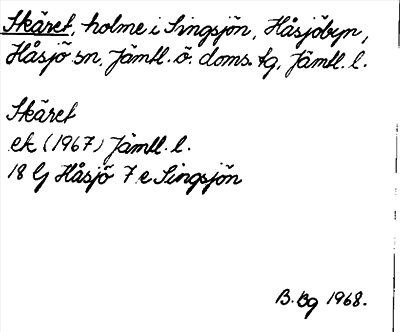 Skäret, holme i Singsjön, Håsjöbyn,
Håsjö sn, Jämtl. ö. doms. tg, Jämtl. l.
Skäret
ek (1967) Jämtl. l.
18 G Håsjö 7 e Singsjön
B. Bg 1968.